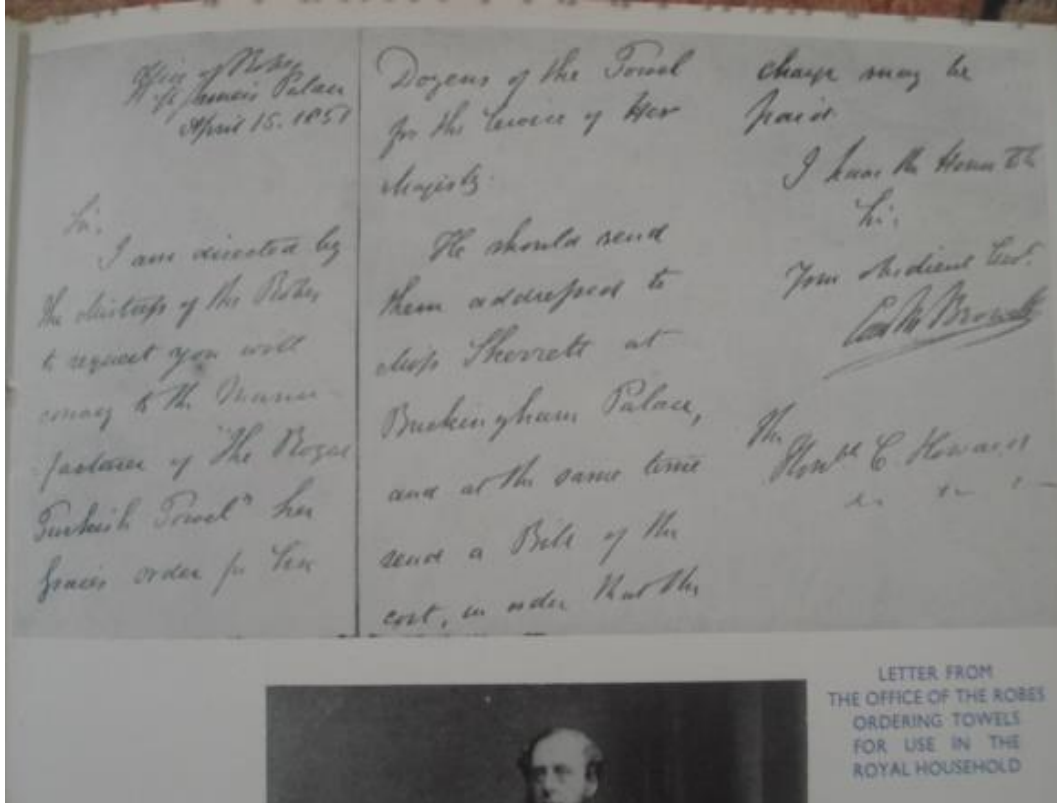 Office of Robes
St James's Palace
April 15. 1851
Sir,
I am directed by
the Mistress of the Robes
to request you will
convey to the Manu-
facturer of "The Royal
Turkish Towel" her
Grace's order for Ten
Dozens of the Towel
for the Service of Her
Majesty.
He should send
them addressed to
Miss Skerrett at
Buckingham Palace,
and at the same time
send a Bill of the
cost, in order that the
charge may be
paid.
I have the Honor to be
Sir,
Your obedient Servt.
The
Honble C Howard
LETTER FROM
THE OFFICE OF THE ROBES
ORDERING TOWELS
FOR USE IN THE
ROYAL HOUSEHOLD